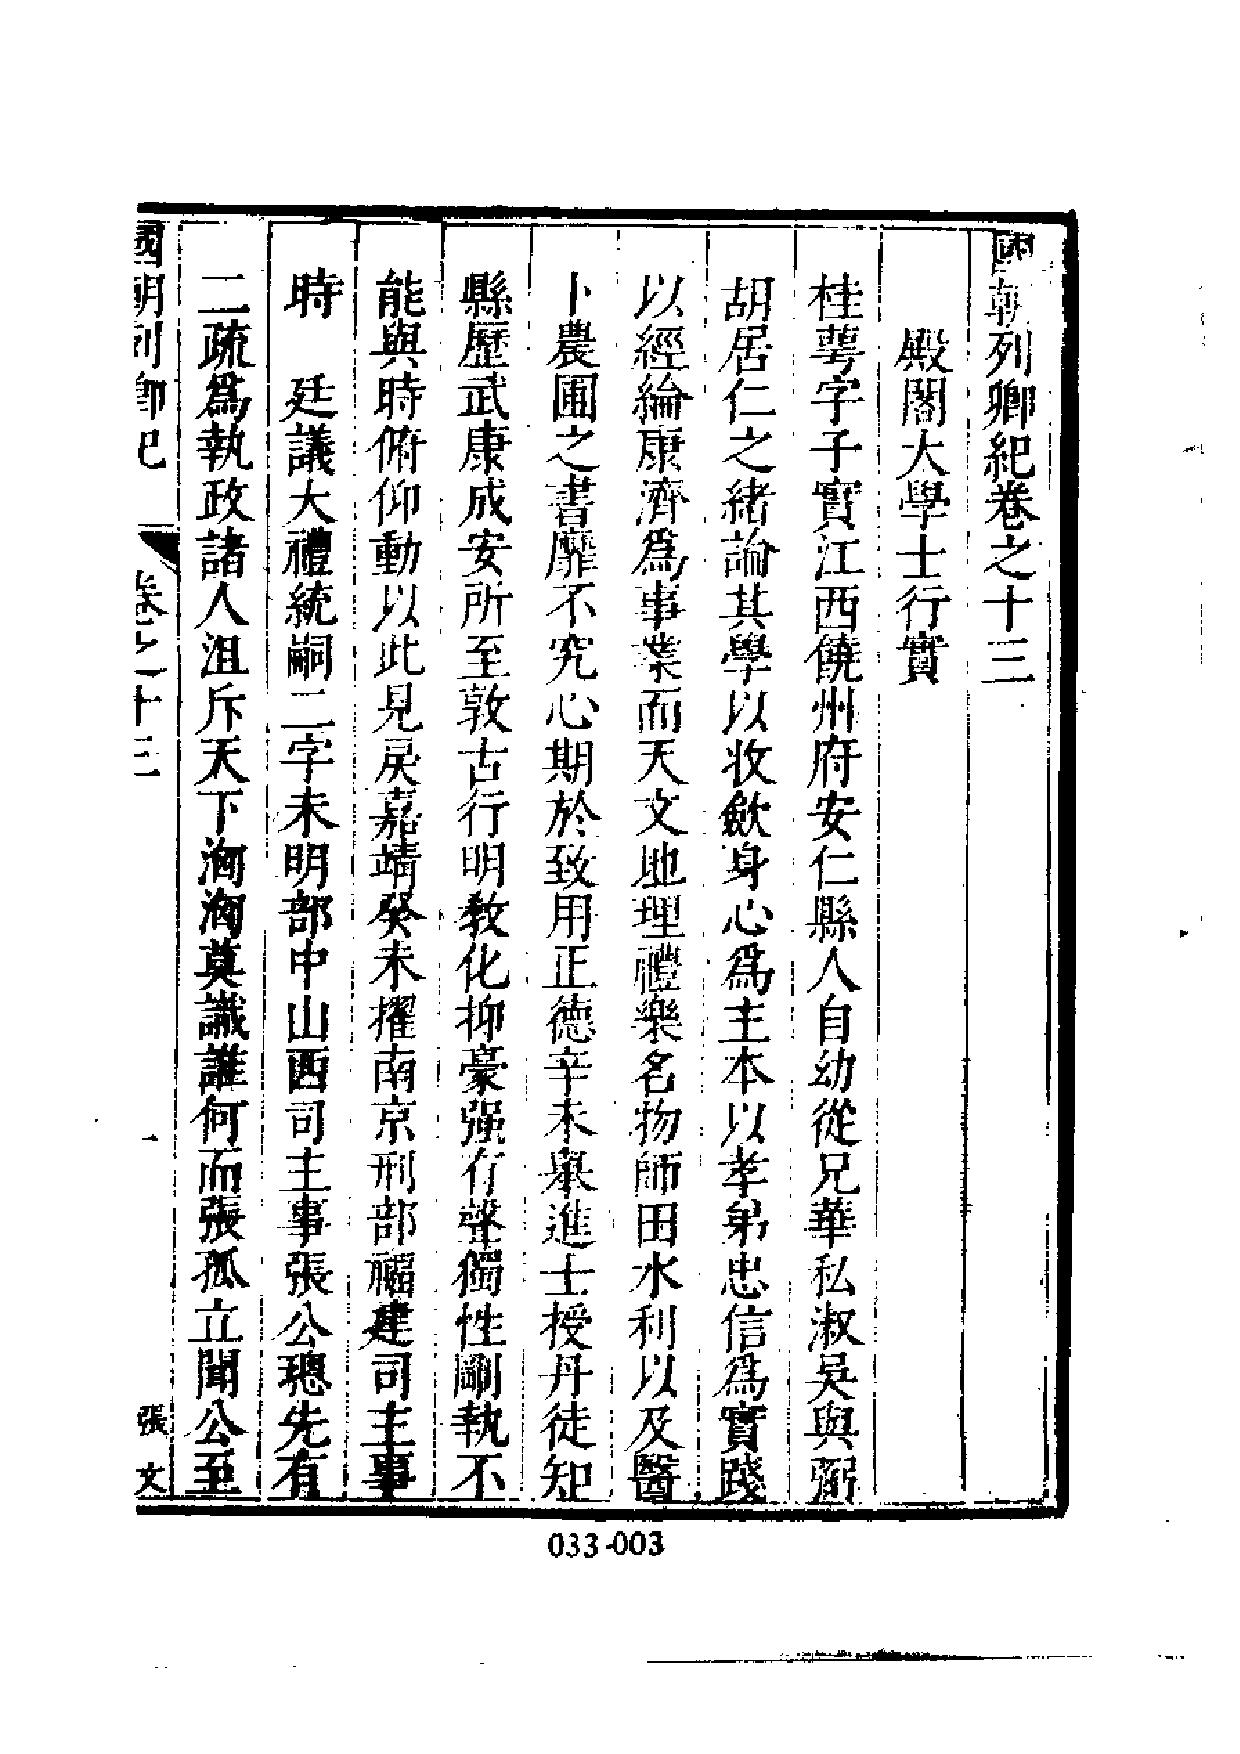 國朝列卿紀卷之十三
殿閣大學士行實
桂萼字子實江西饒州府安仁縣人自幼從兄華私淑吳與弼
胡居仁之緒論其學以收斂身心爲主本以孝弟忠信爲實踐
以經綸康濟爲事業而天文地理禮樂名物師田水利以及醫
卜農圃之書靡不究心期於致用正德辛未舉進士授丹徒知
縣歷武康成安所至敦古行明教化抑豪强有聲獨性剛執不
能與時俯仰動以此見戾嘉靖癸未擢南京刑部福建司主事
時　廷議大禮統嗣二字未明部中山西司主事張公璁先有
二疏爲執政諸人沮斥天下洶洶莫識誰何而張孤立聞公至
國朝列卿紀　卷之十三　一　張文
033-003